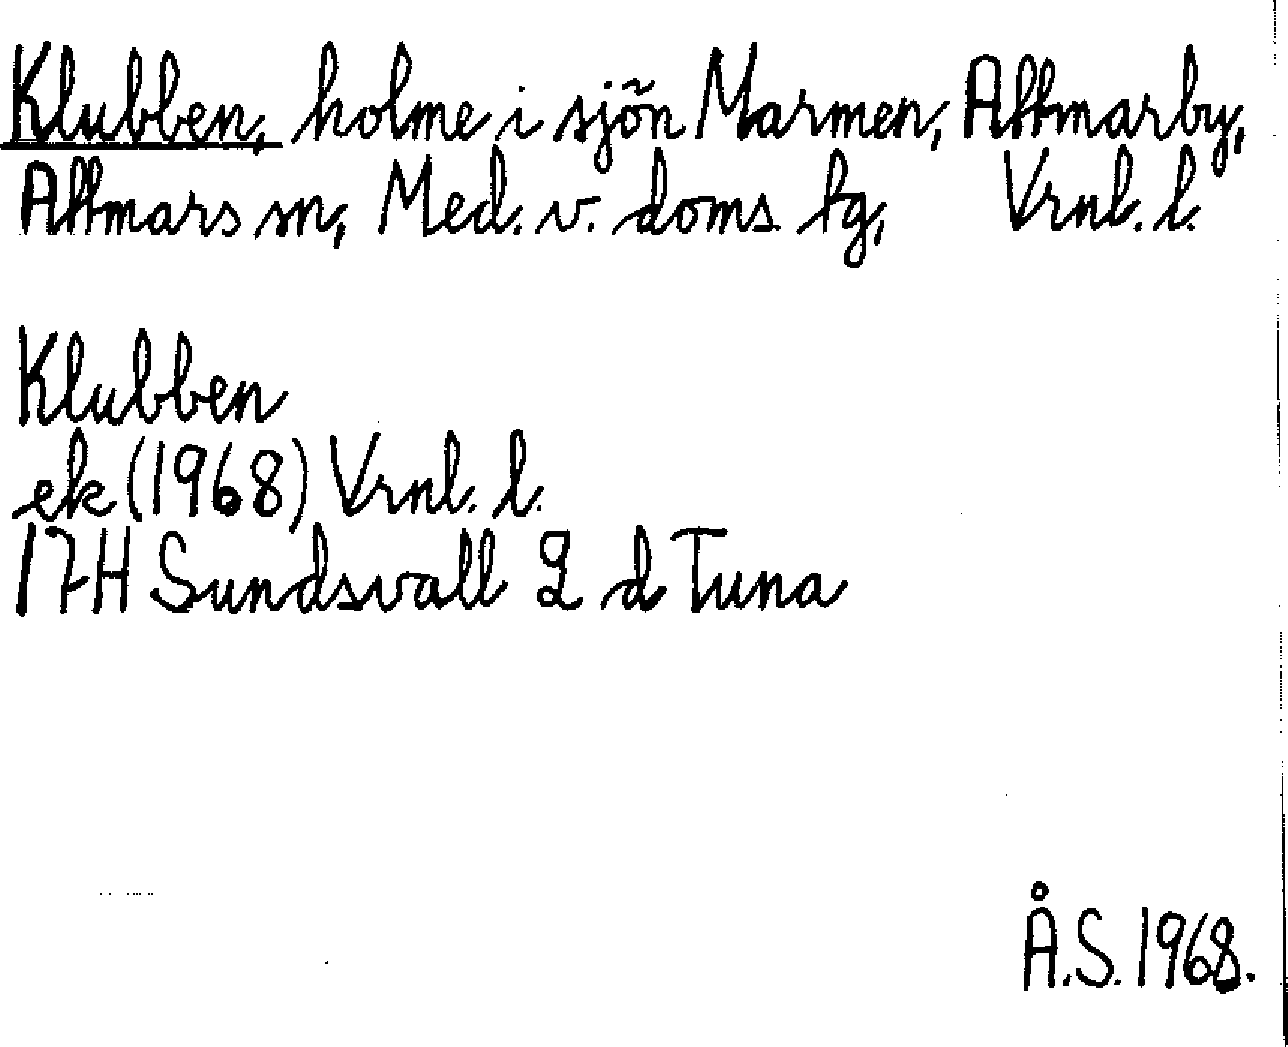 Klubben, holme i sjön Marmen, Attmarby,
Attmars sn, Med. v. doms. tg, Vrnl. l.
Klubben
ek (1968) Vrnl. l.
17H Sundsvall 2 d Tuna
Å.S. 1968.